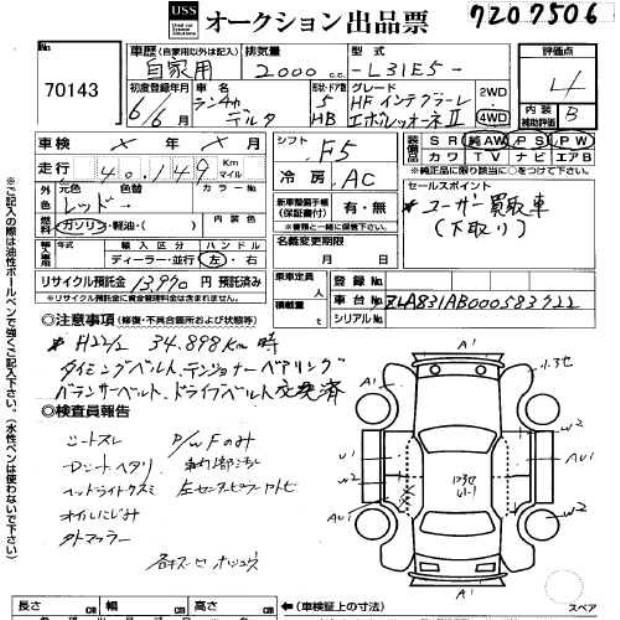 USS オークション出品票
7207506
No.
70143
車歴 (自家用以外は記入)
自家用
排気量
2000 c.c.
型式
-L31E5-
評価点
4
内装
補助評価
B
初度登録年月
6/6月
車名
ランチャ
デルタ
形状・ドア数
5
HB
グレード
HF インテグラーレ
エボレッオーネ II
2WD
4WD
車検 × 年 × 月
走行 40,149 Km
マイル
シフト F5
冷房 AC
装備品
SR 純AW PS PW
カワ TV ナビ エアB
※純正品に限り該当に○をつけて下さい。
外色
元色 色替 カラーNo.
レッド→
燃料
ガソリン・軽油・( )
内装色
輸入車用
年式
輸入区分
ディーラー・並行
ハンドル
左・右
新車整備手帳
(保証書付)
有・無
※書類と一緒に保管して下さい。
名義変更期限
月 日
セールスポイント
* ユーザー買取車
(下取り)
リサイクル預託金 13,970 円 預託済み
※リサイクル預託金に資金管理料金は含まれません。
乗車定員
人
積載量
t
登録No.
車台No. ZLA831AB000583722
シリアルNo.
◎注意事項 (修復・不具合箇所および状態等)
* H22/2 34.898Km時
タイミングベルト、テンショナーベアリング
バランサーベルト、ドライブベルト交換済
◎検査員報告
シートスレ
P/Wクのみ
ヘッドライトクスミ
オイルにじみ
タトマフラー
A1
A1
小キズ
W2
U1
W2
AU1
AU1
W2
A1
スペア
長さ cm 幅 cm 高さ cm
←(車検証上の寸法)
※ご記入の際は油性ボールペンで強くご記入下さい。(水性ペンは使わないで下さい)